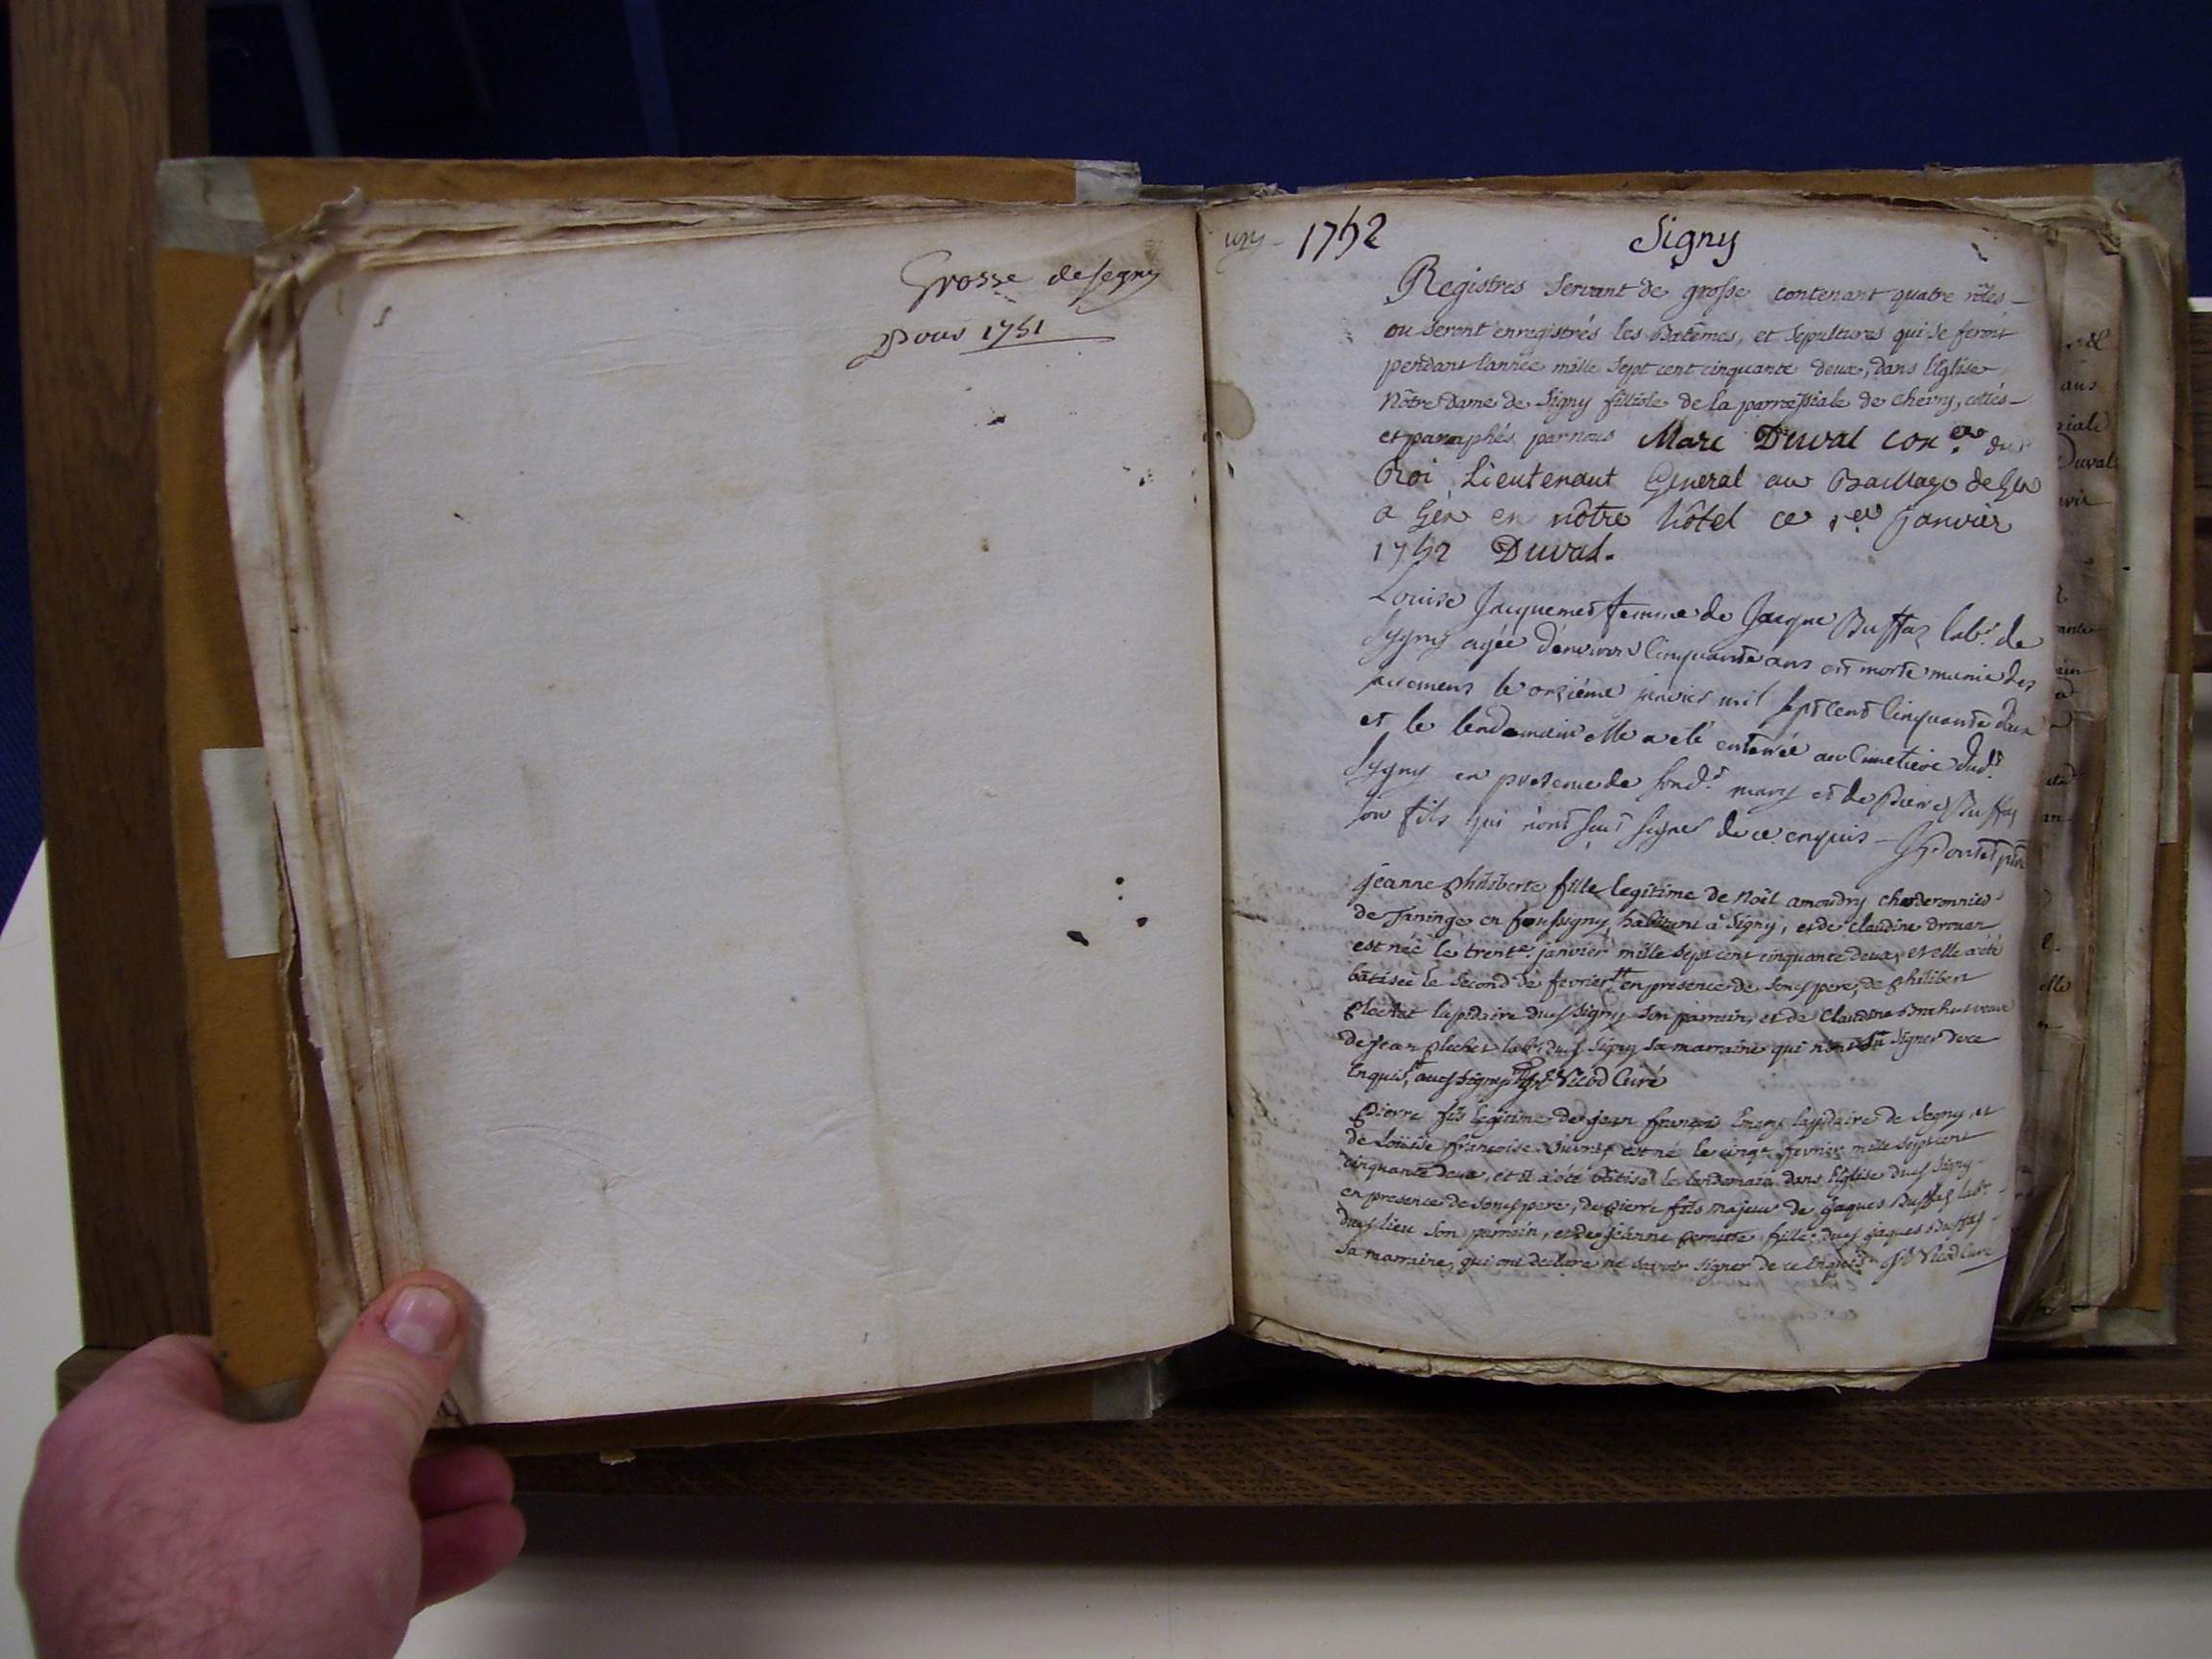 Grosse de Segny
Pour 1751
1752 Signy
Registres servant de grosse contenant quatre rôles
ou seront enregistrés les Batêmes, et sepultures qui se feront
pendant l'année mille sept cent cinquante deux, dans l'Eglise
Nôtre Dame de Signy filliole de la parroissiale de chevry, cottés
et paraphés par nous Marc Duval con.er du
Roi Lieutenant General au Bailliage de Gex
a Gex en nôtre hôtel ce 1er Janvier
1752 Duval.
Louise Jacquemet femme de Jacque Buffaz lab.r de
Sygny agée d'environ Cinquante ans est morte munie des
sacremens le onziéme janvier mil sept Cent Cinquante deux
et le lendemain elle a eté enterrée au Cimetiere dud.t
Sygny en presence de sond.t mary et de Pierre Buffaz
son fils qui n'ont sçut signer de ce enquis
jeanne philiberte fille legitime de Noël amoudry
de Taninge en foussigny, habitant à Signy, et de claudine drouan
est née le trente janvier mille sept cent cinquante deux, et elle a été
bâtisée le second de fevrier en presence de son pere, de philibert
plechet lapidaire dud Signy son parrain, et de Claudine veuve
de jean plechet lab.r dud Signy sa marraine qui n'ont su signer de ce
Enquis, aud Signy Nicod Curé
Pierre fils legitime de jean françois Emery lapidaire de Segny, et
de Loüise françoise est né le cinq fevrier mille sept cent
cinquante deux, et il a été bâtisé le lendemain dans l'Eglise dud Signy
en presence de son pere, de pierre fils majeur de jaques Buffaz lab.r
dud lieu son parrain, et de jeanne pernette fille dud jaques Buffaz
sa marraine, qui ont declaré ne savoir signer de ce Enquis Nicod Curé